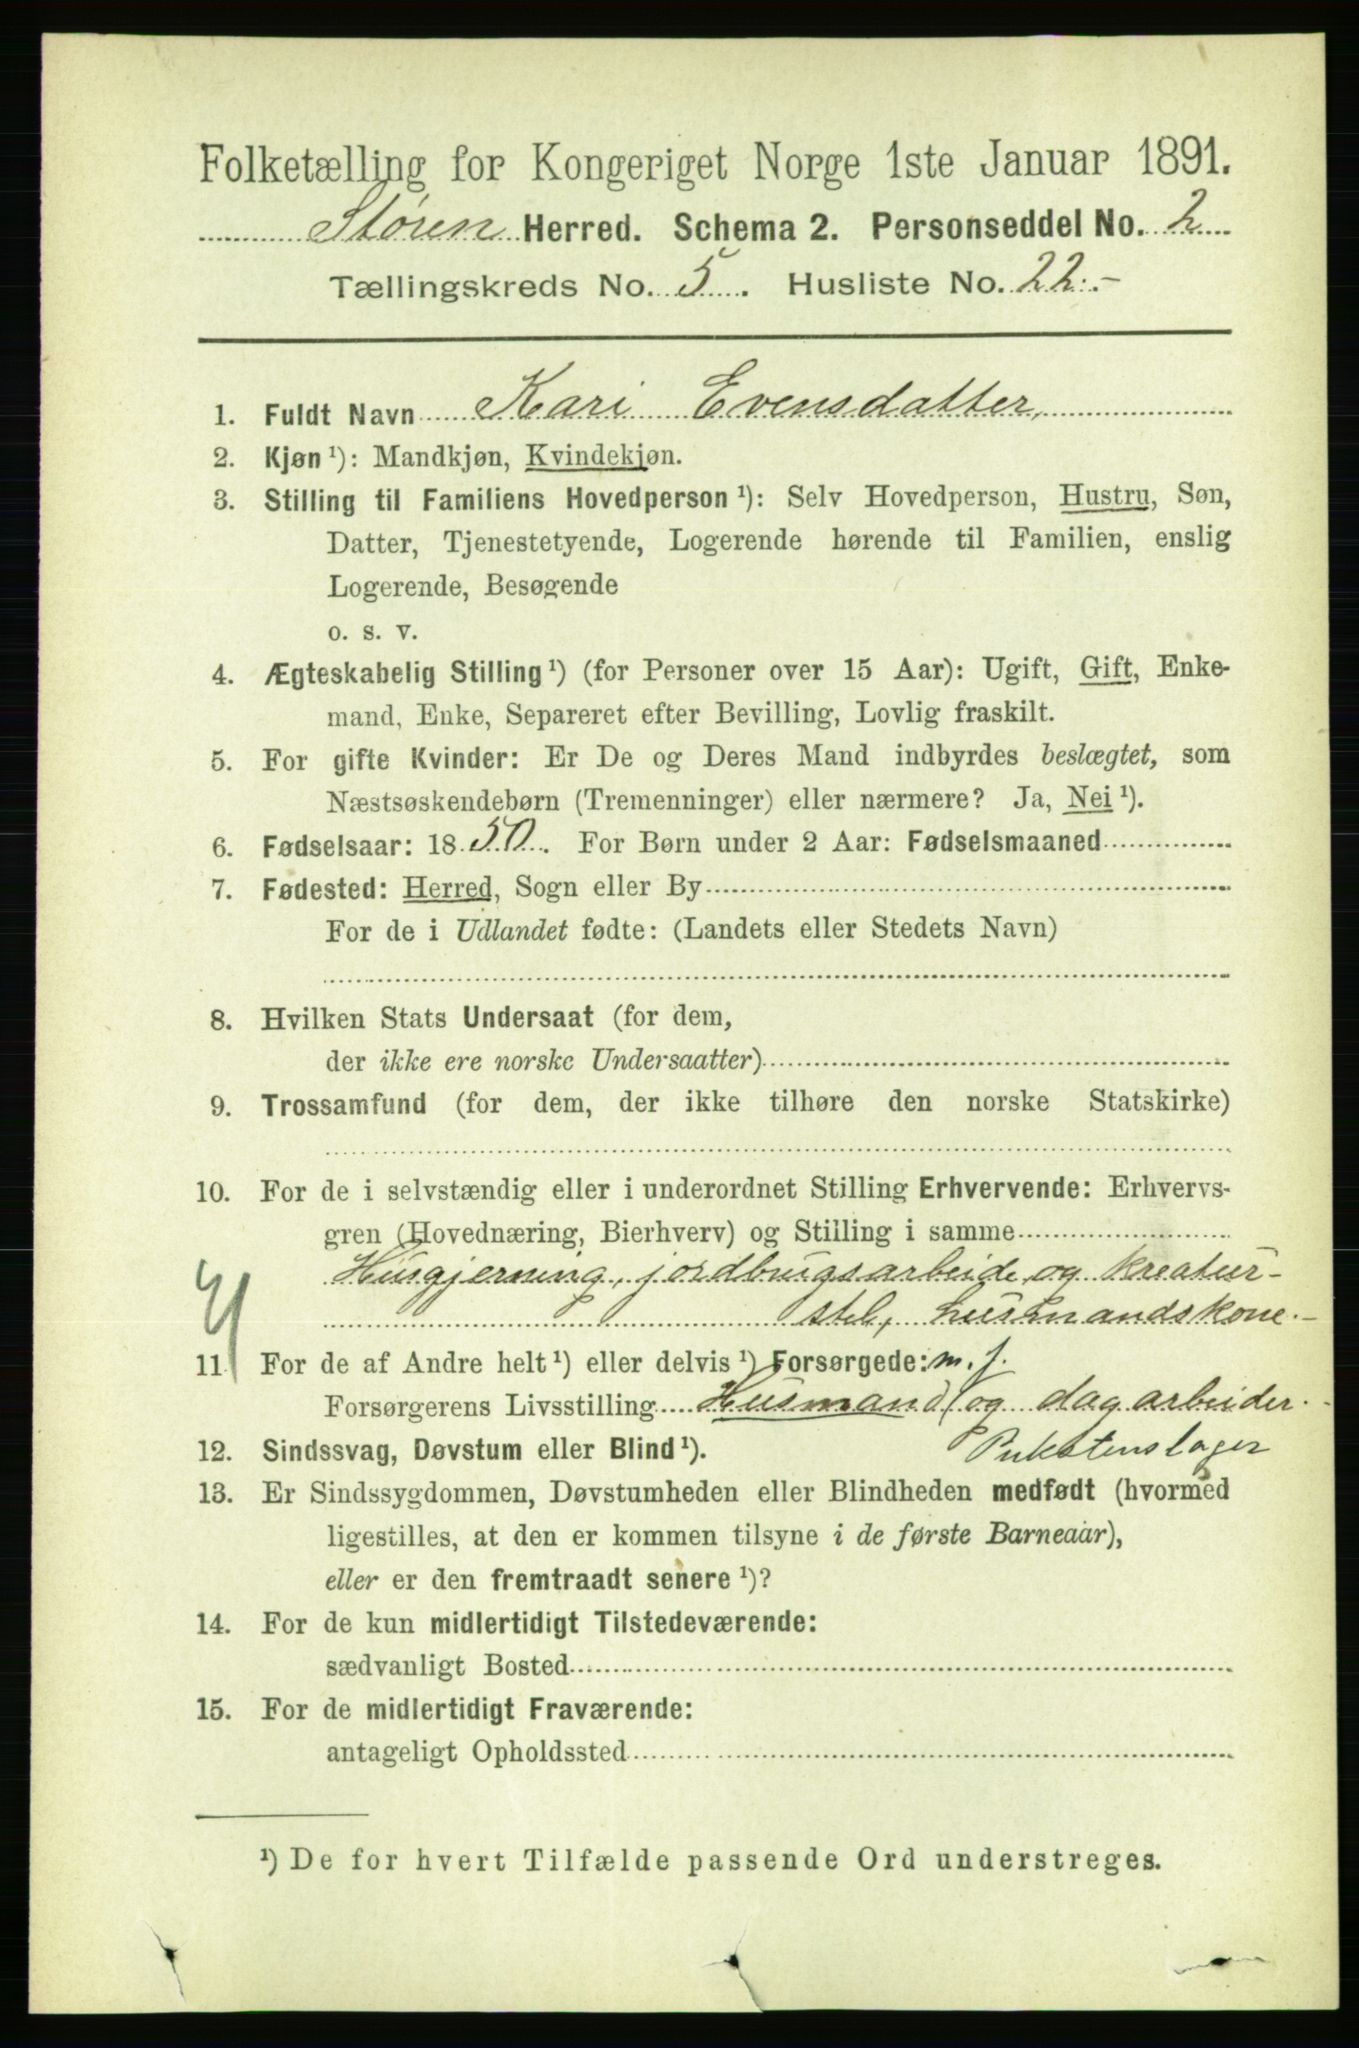 Folketælling for Kongeriget Norge 1ste Januar 1891.
Støren Herred. Schema 2. Personseddel No. 2
Tællingskreds No. 5. Husliste No. 22.-
1. Fuldt Navn Kari Evensdatter,
2. Kjøn ¹): Mandkjøn, Kvindekjøn.
3. Stilling til Familiens Hovedperson ¹): Selv Hovedperson, Hustru, Søn,
Datter, Tjenestetyende, Logerende hørende til Familien, enslig
Logerende, Besøgende
o. s. v.
4. Ægteskabelig Stilling ¹) (for Personer over 15 Aar): Ugift, Gift, Enke-
mand, Enke, Separeret efter Bevilling, Lovlig fraskilt.
5. For gifte Kvinder: Er De og Deres Mand indbyrdes beslægtet, som
Næstsøskendebørn (Tremenninger) eller nærmere? Ja, Nei ¹).
6. Fødselsaar: 1850. For Børn under 2 Aar: Fødselsmaaned
7. Fødested: Herred, Sogn eller By
For de i Udlandet fødte: (Landets eller Stedets Navn)
8. Hvilken Stats Undersaat (for dem,
der ikke ere norske Undersaatter)
9. Trossamfund (for dem, der ikke tilhøre den norske Statskirke)
10. For de i selvstændig eller i underordnet Stilling Erhvervende: Erhvervs-
gren (Hovednæring, Bierhverv) og Stilling i samme
Husgjerning, jordbrugsarbeide og kreatur-
stel, husmandskone.-
11. For de af Andre helt ¹) eller delvis ¹) Forsørgede: m. j.
Forsørgerens Livsstilling Husmand (og dagarbeider.
12. Sindssvag, Døvstum eller Blind ¹).
13. Er Sindssygdommen, Døvstumheden eller Blindheden medfødt (hvormed
ligestilles, at den er kommen tilsyne i de første Barneaar),
eller er den fremtraadt senere ¹)?
14. For de kun midlertidigt Tilstedeværende:
sædvanligt Bosted
15. For de midlertidigt Fraværende:
antageligt Opholdssted
¹) De for hvert Tilfælde passende Ord understreges.